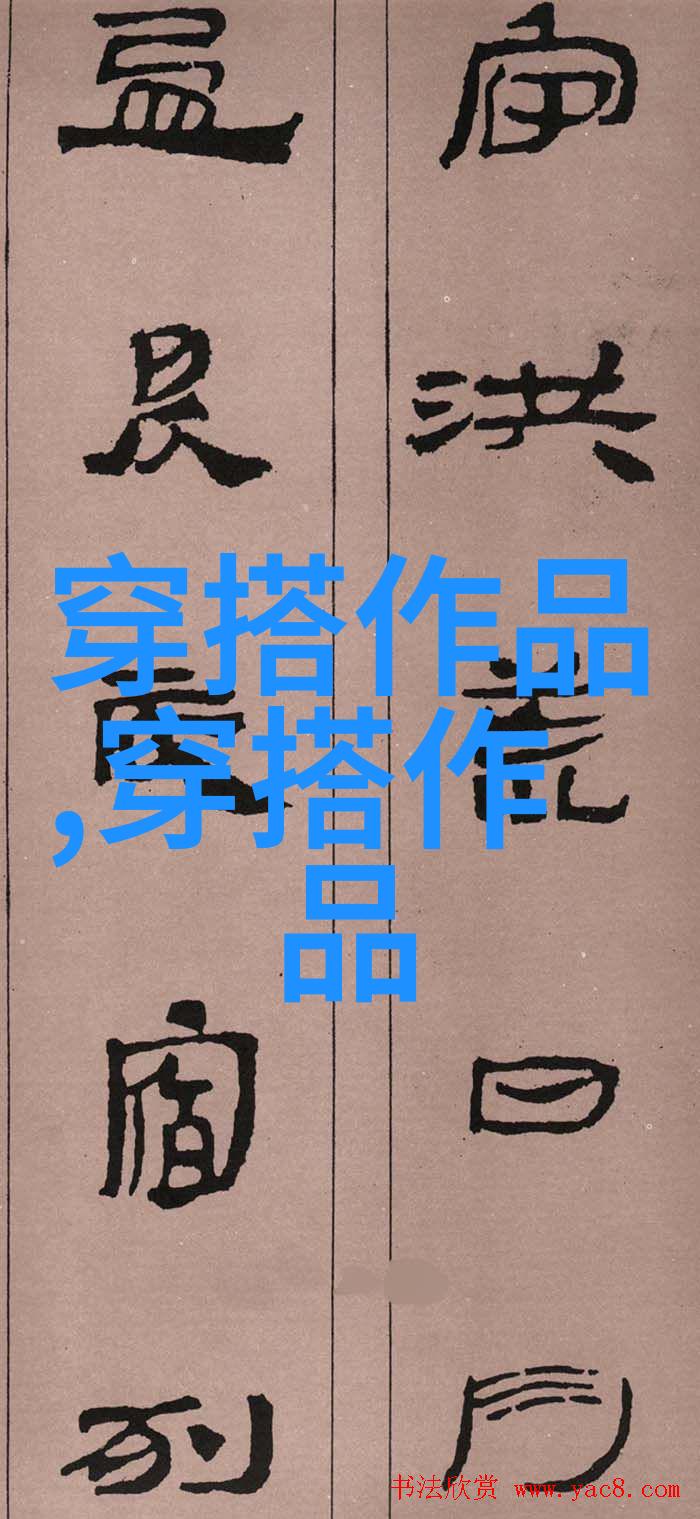 宇洪荒日月
盈昃辰宿列
穿搭作品
,穿搭作
品
书法欣赏 www.yac8.com